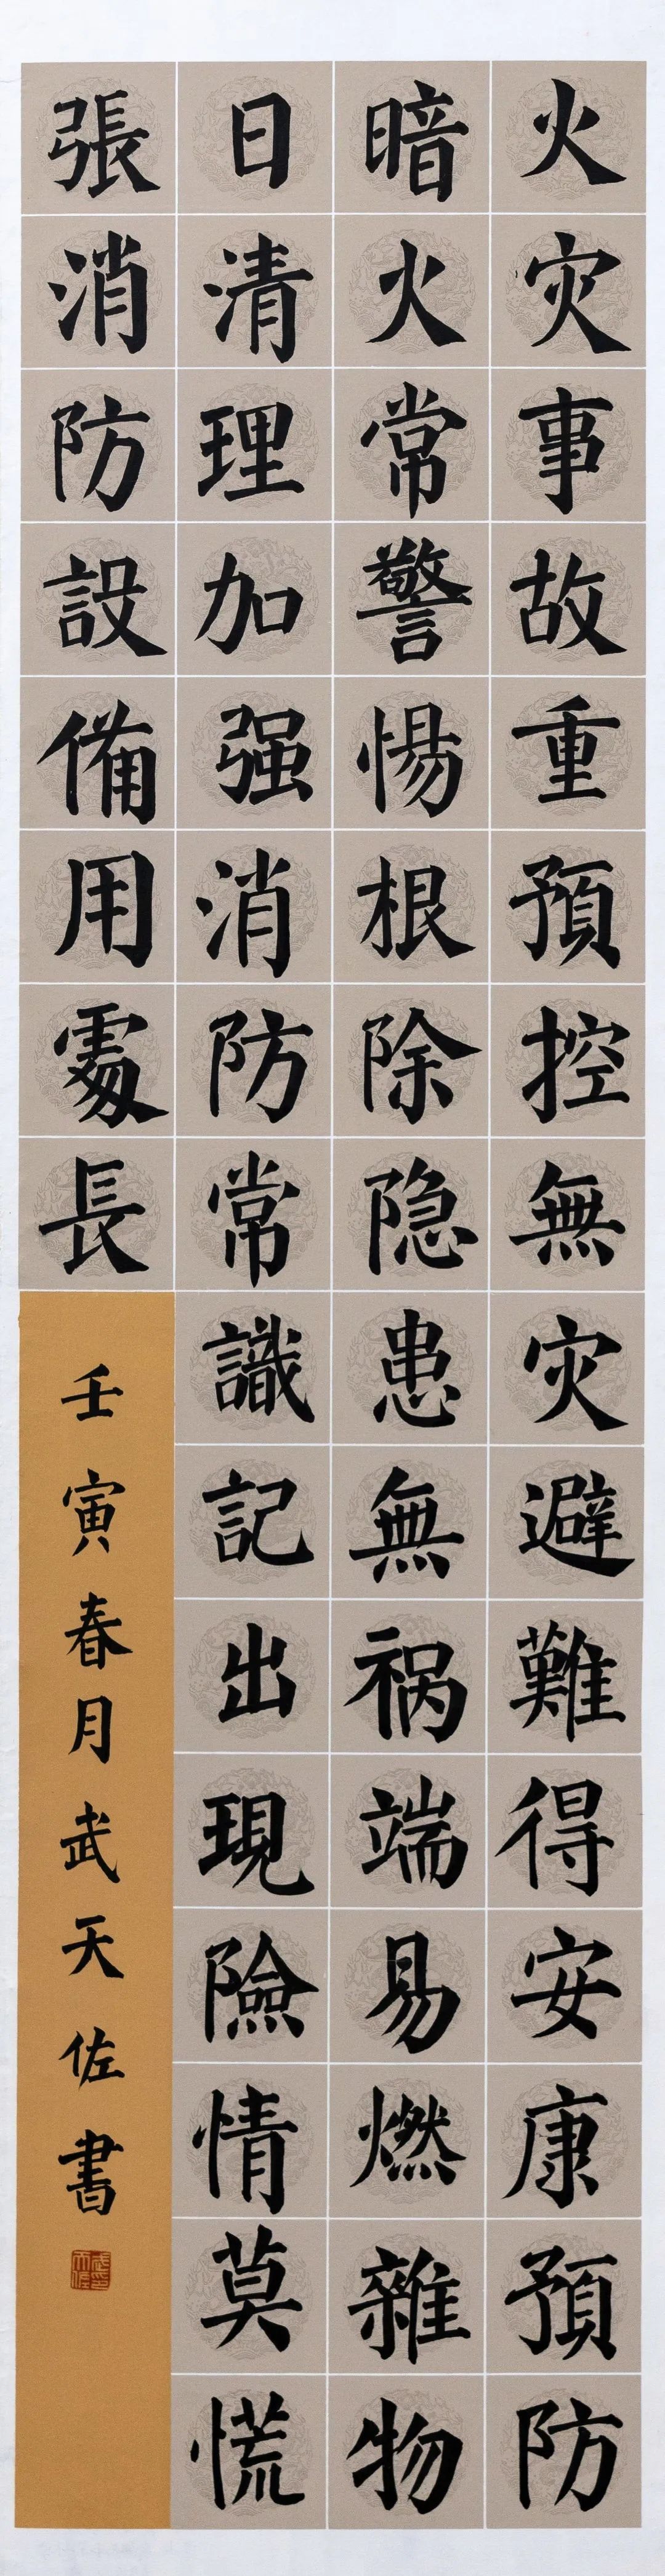 火灾事故重預控無灾避難得安康預防
暗火常警惕根除隐患無祸端易燃雜物
日清理加强消防常識記出現險情莫慌
張消防設備用處長
壬寅春月武天佐書